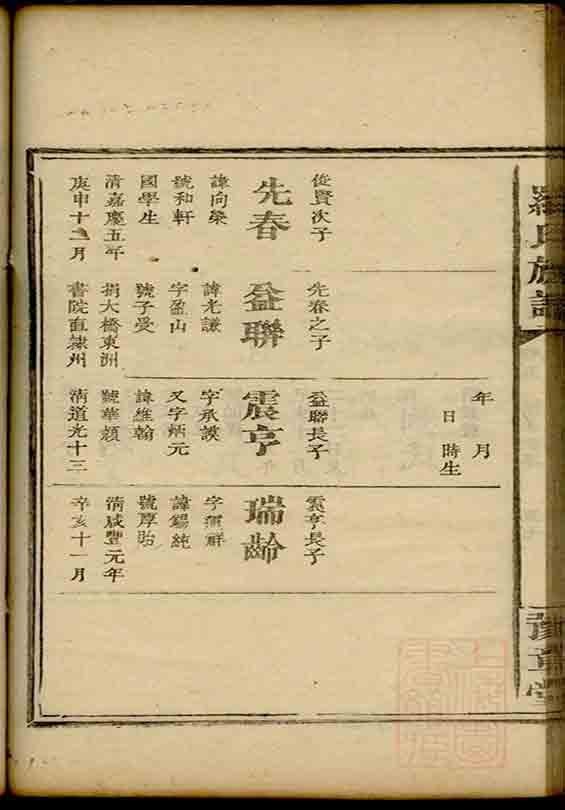 羅氏族譜
豫章堂
年 月
日 時生
從賢次子
先春
諱向榮
號和軒
國學生
清嘉慶五年
庚申十二月
先春之子
益聯
諱光謙
字盈山
號子受
捐大橋東洲
書院直隸州
益聯長子
震亨
字承謨
又字炳元
諱維翰
號華頴
清道光十三
震亨長子
瑞齡
諱錫純
號厚貽
清咸豐元年
辛亥十一月